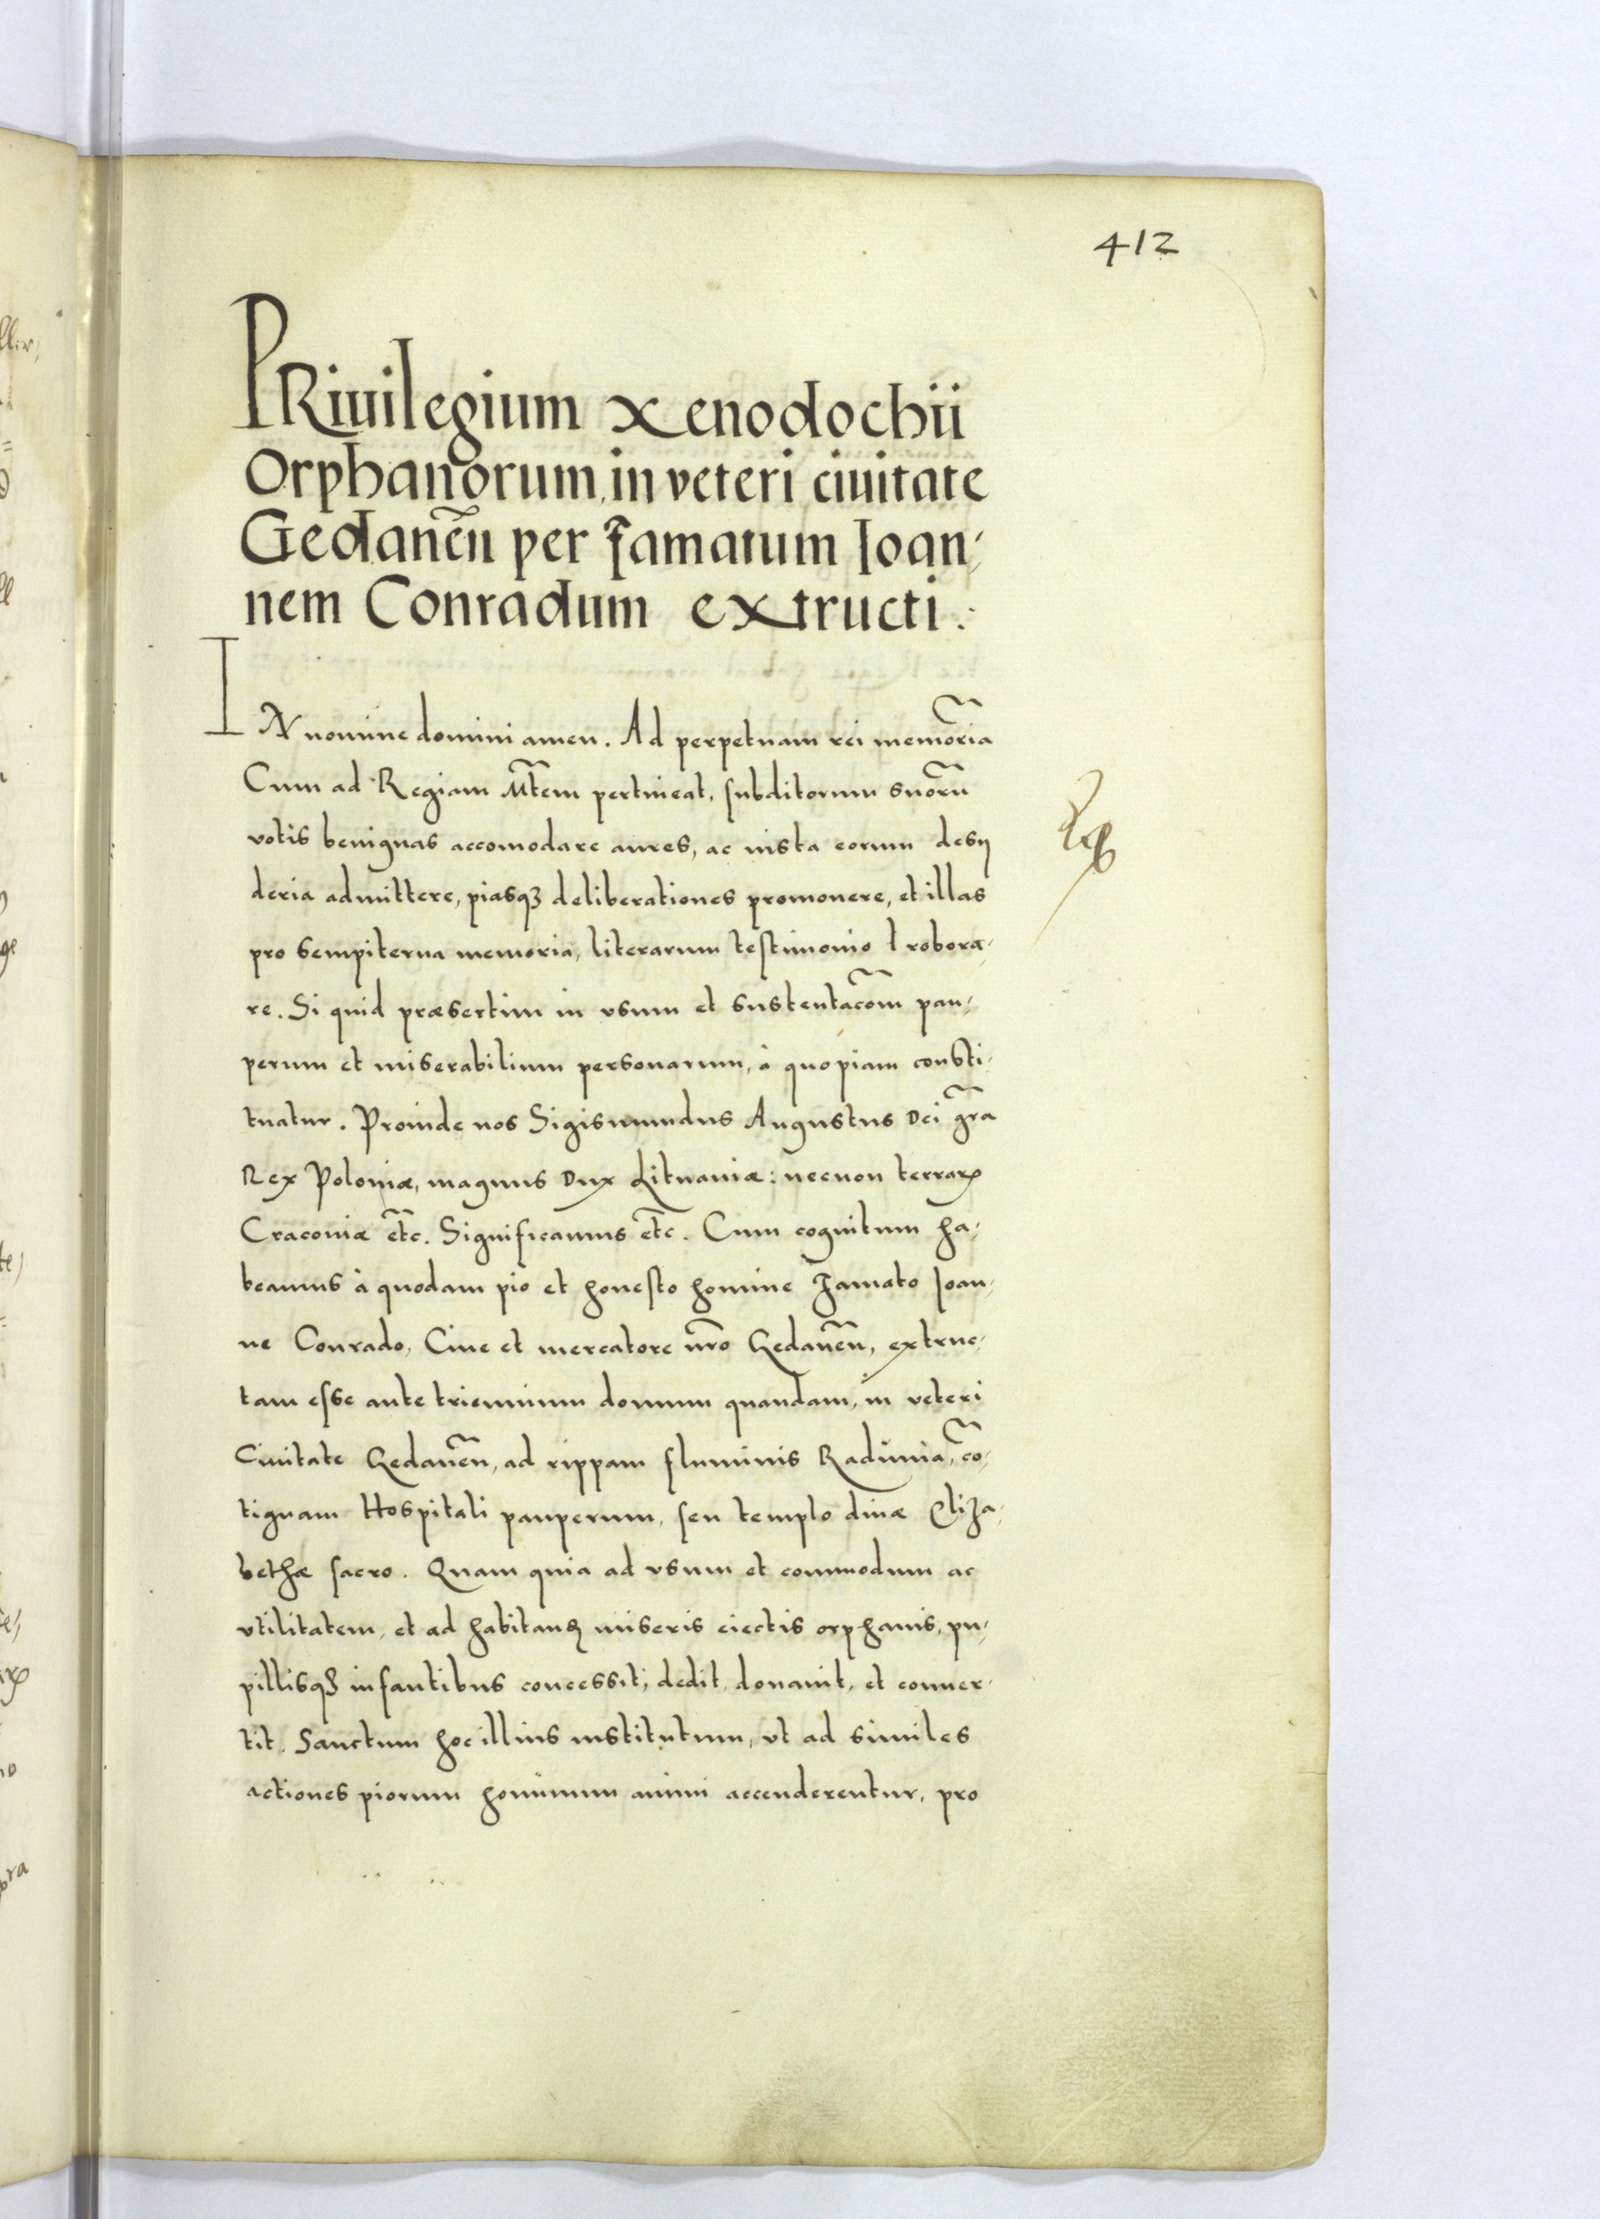 412
PRiuilegium xenodochii
Orphanorum, in veteri ciuitate
Gedanẽn per famatum Ioan,
nem Conradum extructi.
IN nomine domini amen. Ad perpetuam rei memor̃ia
Cum ad Regiam Mt̃em pertineat, subditorum suor̃u
votis benignas accomodare aures, ac iusta eorum desij
deria admittere, piasqȝ deliberationes promouere, et illas
pro sempiterna memoria, literarum testimonio robora,
re. Si quid præsertim in vsum et sustentac̃om pau,
perum et miserabilium personarum, à quopiam consti,
tuatur. Proinde nos Sigismundus Augustus Dei gr̃a
Rex Poloniæ, magnus Dux Lituaniæ: necnon terrarꝝ
Cracouiæ et̃c. Significamus et̃c. Cum cognitum ha,
beamus à quodam pio et honesto homine famato Ioan,
ne Conrado, Ciue et mercatore nr̃o Gedanẽn, extruc,
tam esse ante triennium domum quandam, in veteri
Ciuitate Gedanẽn, ad rippam fluminis Radunia, cõ,
tiguam Hospitali pauperum, seu templo diuæ Eliza,
bethæ sacro. Quam quia ad vsum et commodum ac
vtilitatem, et ad habitanꝫ miseris eiectis orphanis, pu,
pillisqȝ infantibus concessit, dedit, donauit, et conuer,
tit. Sanctum hoc illius institutum, vt ad similes
actiones piorum hominum animi accenderentur, pro